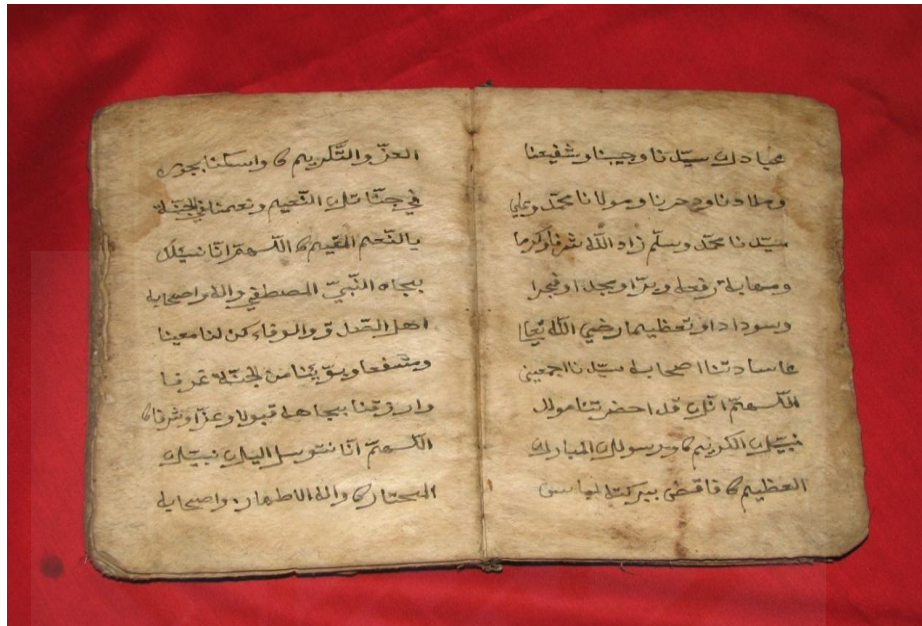 عبادك سيّدنا وحبيبنا وشفيعنا
وملادنا ودخرنا ومولانا محمّد وعلي
سيّدنا محمّد وسلّم زاد اللّه شرفا وكرما
ومهابة رفعة وبرّا ومجدا وفجرا
وسودادا وتعظيما رضي اللّه تعا
عاسادتنا اصحاب سيّدنا اجمعين
اللّهمّ انّك قد احضرتنا مولد
نبيّك الكريم ورسولك المبارك
العظيم فاقض ببركته
العزّ والتّكريم واسكنا بجوره
في جنّاتك النّعيم ونعمنا في الجنّة
يالنّعم المقيم اللّهمّ انّا نسئلك
بجاه النّبيّ المصطفي واله واصحابه
اهل الصّدق والوفاء كن لنا معينا
ومشفعا وبوّئنا من الجنّة غرفا
وارزقنا بجاهه قبولا وعزّا وشرفا
اللّهمّ انّا نتوسل اليك نبيّك
المختار واله الاطهار واصحابه